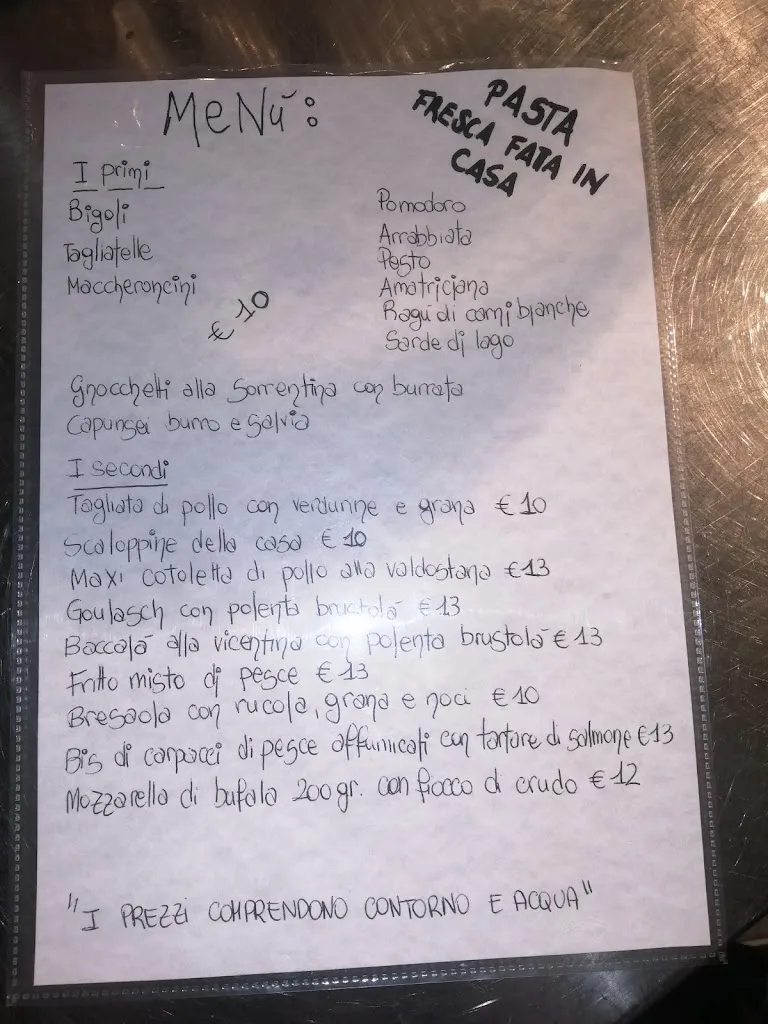 MeNú:
PASTA
FRESCA FATA IN
CASA
I primi
Bigoli
Tagliatelle
Maccheroncini
€ 10
Pomodoro
Arrabbiata
Pesto
Amatriciana
Ragú di carni bianche
Sarde di lago
Gnocchetti alla Sorrentina con burrata
Capunsei burro e salvia
I secondi
Tagliata di pollo con verdurine e grana € 10
Scaloppine della casa € 10
Maxi cotoletta di pollo alla valdostana €13
Goulasch con polenta brustolá €13
Baccalá alla vicentina con polenta brustolá €13
Fritto misto di pesce €13
Bresaola con rucola, grana e noci €10
Bis di carpacci di pesce affumicati con tartare di salmone €13
Mozzarella di bufala 200gr. con fiocco di crudo €12
"I PREZZI COMPRENDONO CONTORNO E ACQUA"